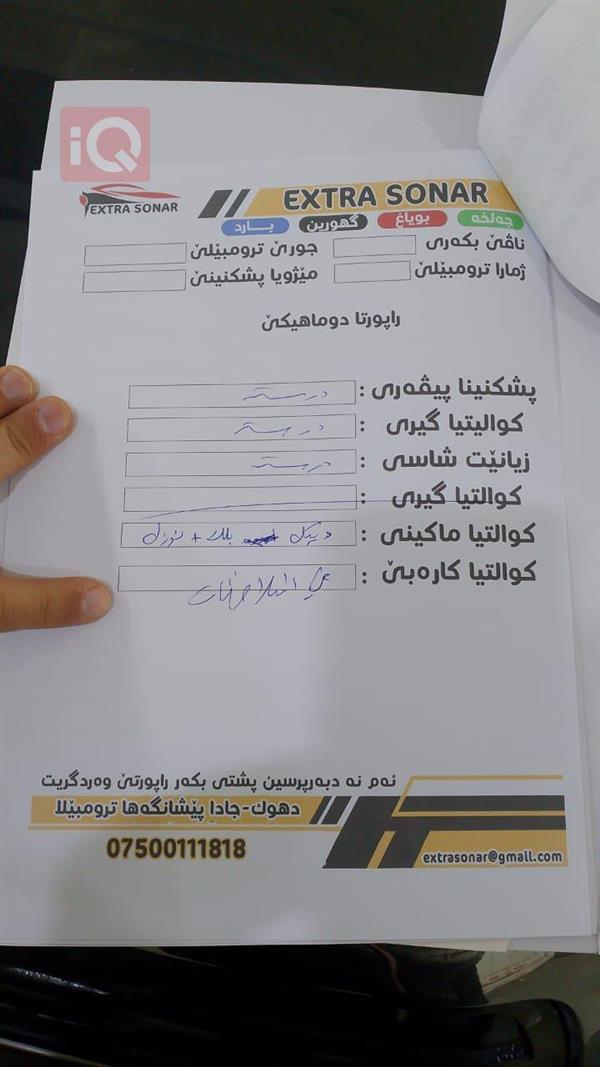 iQ
EXTRA SONAR
EXTRA SONAR
چەلخە بویاغ گهورین بــارد
ناڤێ بکەری جورێ ترومبێلێ
ژمارا ترومبێلێ مێژویا پشکنینێ
راپورتا دوماهیکێ
پشکنینا پیڤەری : درسته
کوالیتیا گیری : درسته
زیانێت شاسی : درسته
کوالتیا گیری :
کوالتیا ماکینی : دبیکل بلك + نوزل
کوالتیا کارەبێ :
ئەم نە دبەرپرسین پشتی بکەر راپورتێ وەردگریت
دهوک-جادا پێشانگەها ترومبێلا
07500111818
extrasonar@gmall.com